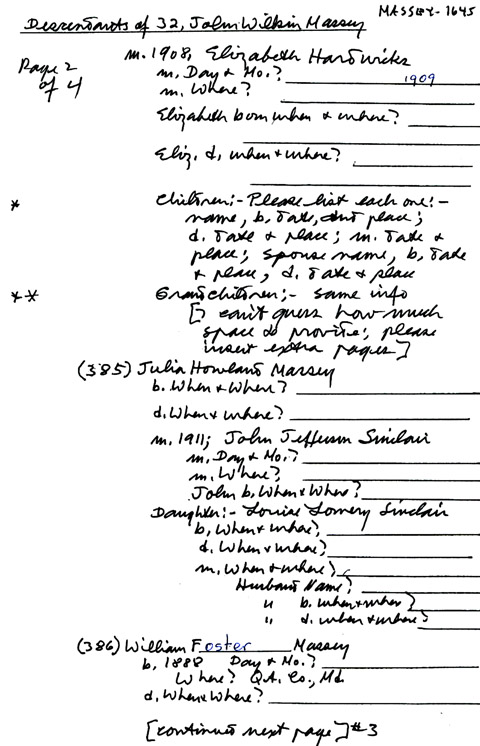 MASSEY-1645
Descendants of 32, John Wilkin Massey
Page 2
of 4
m. 1908, Elizabeth Hardwicke
m. Day & Mo.? 1909
m. Where?
Elizabeth born when & where?
Eliz. d. when & where?
* Children:- Please list each one:-
name, b. date, and place;
d. date & place; m. date &
place; spouse name, b. date
& place, d. date & place
** Grandchildren:- same info
[I can't guess how much
space to provide; please
insert extra pages]
(385) Julia Howland Massey
b. When & Where?
d. When & where?
m. 1911; John Jefferson Sinclair
m. Day & Mo.?
m. Where?
John b. When & Where?
Daughter:- Louise Lowery Sinclair
b. When & where?
d. When & where?
m. When & where?
Husband Name?
" b. when & when?
" d. when & where?
(386) William Foster Massey
b. 1888 Day & Mo.?
Where? Q.A. Co., Md.
d. When & Where?
[continued next page] #3